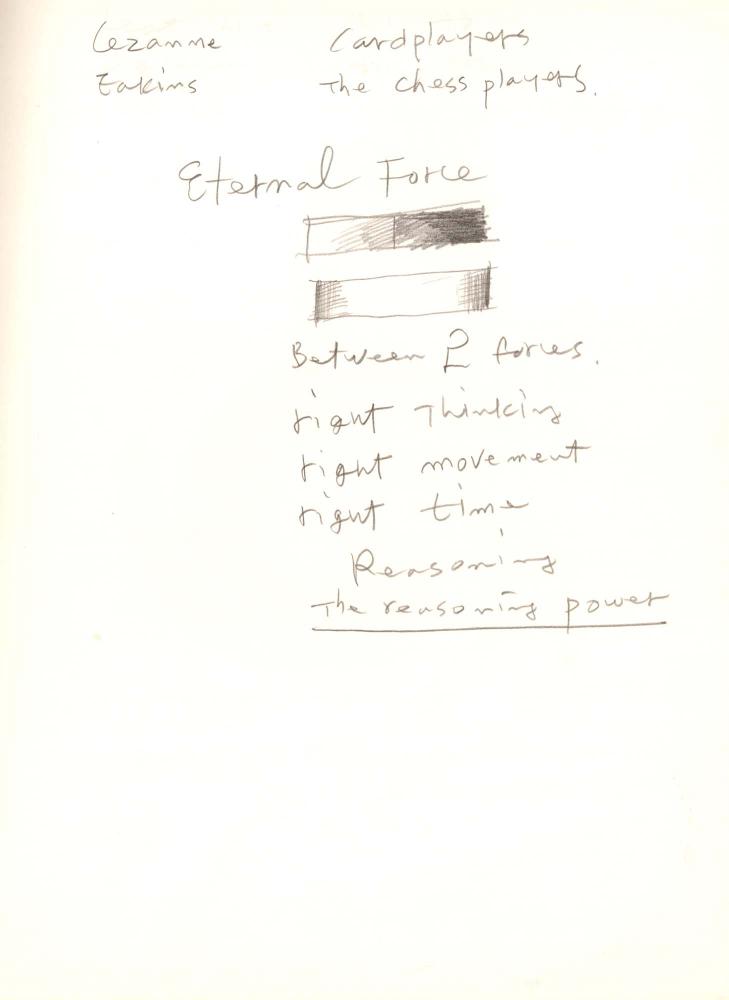 Cezanne Cardplayers
Eakins The Chess players.
Eternal Force
Between 2 forces.
right Thinking
right movement
right time
Reasoning
The reasoning power